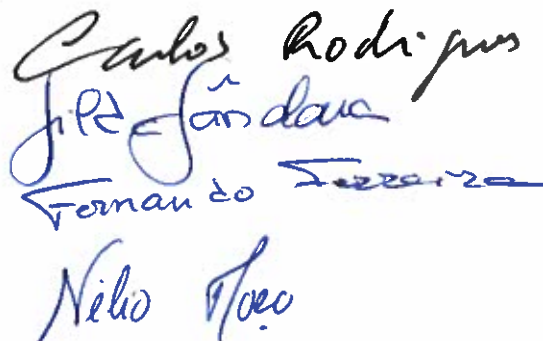 Carlos Rodrigues
Gândara
Fernando Ferreira
Nélio